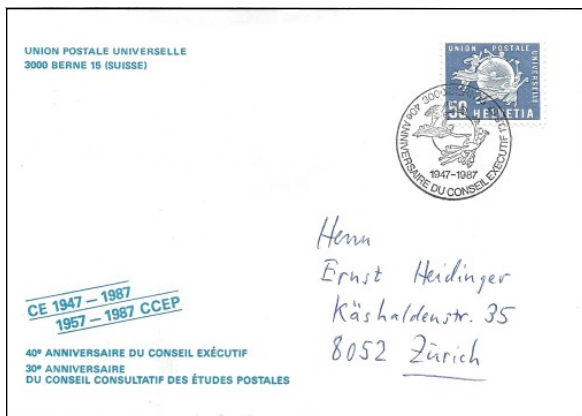 UNION POSTALE UNIVERSELLE
3000 BERNE 15 (SUISSE)
UNION POSTALE
UNIVERSELLE
50 HELVETIA
40e ANNIVERSAIRE DU CONSEIL EXÉCUTIF
1947-1987
Herrn
Ernst Heidinger
Käshaldenstr. 35
8052 Zürich
CE 1947 – 1987
1957 – 1987 CCEP
40e ANNIVERSAIRE DU CONSEIL EXÉCUTIF
30e ANNIVERSAIRE
DU CONSEIL CONSULTATIF DES ÉTUDES POSTALES